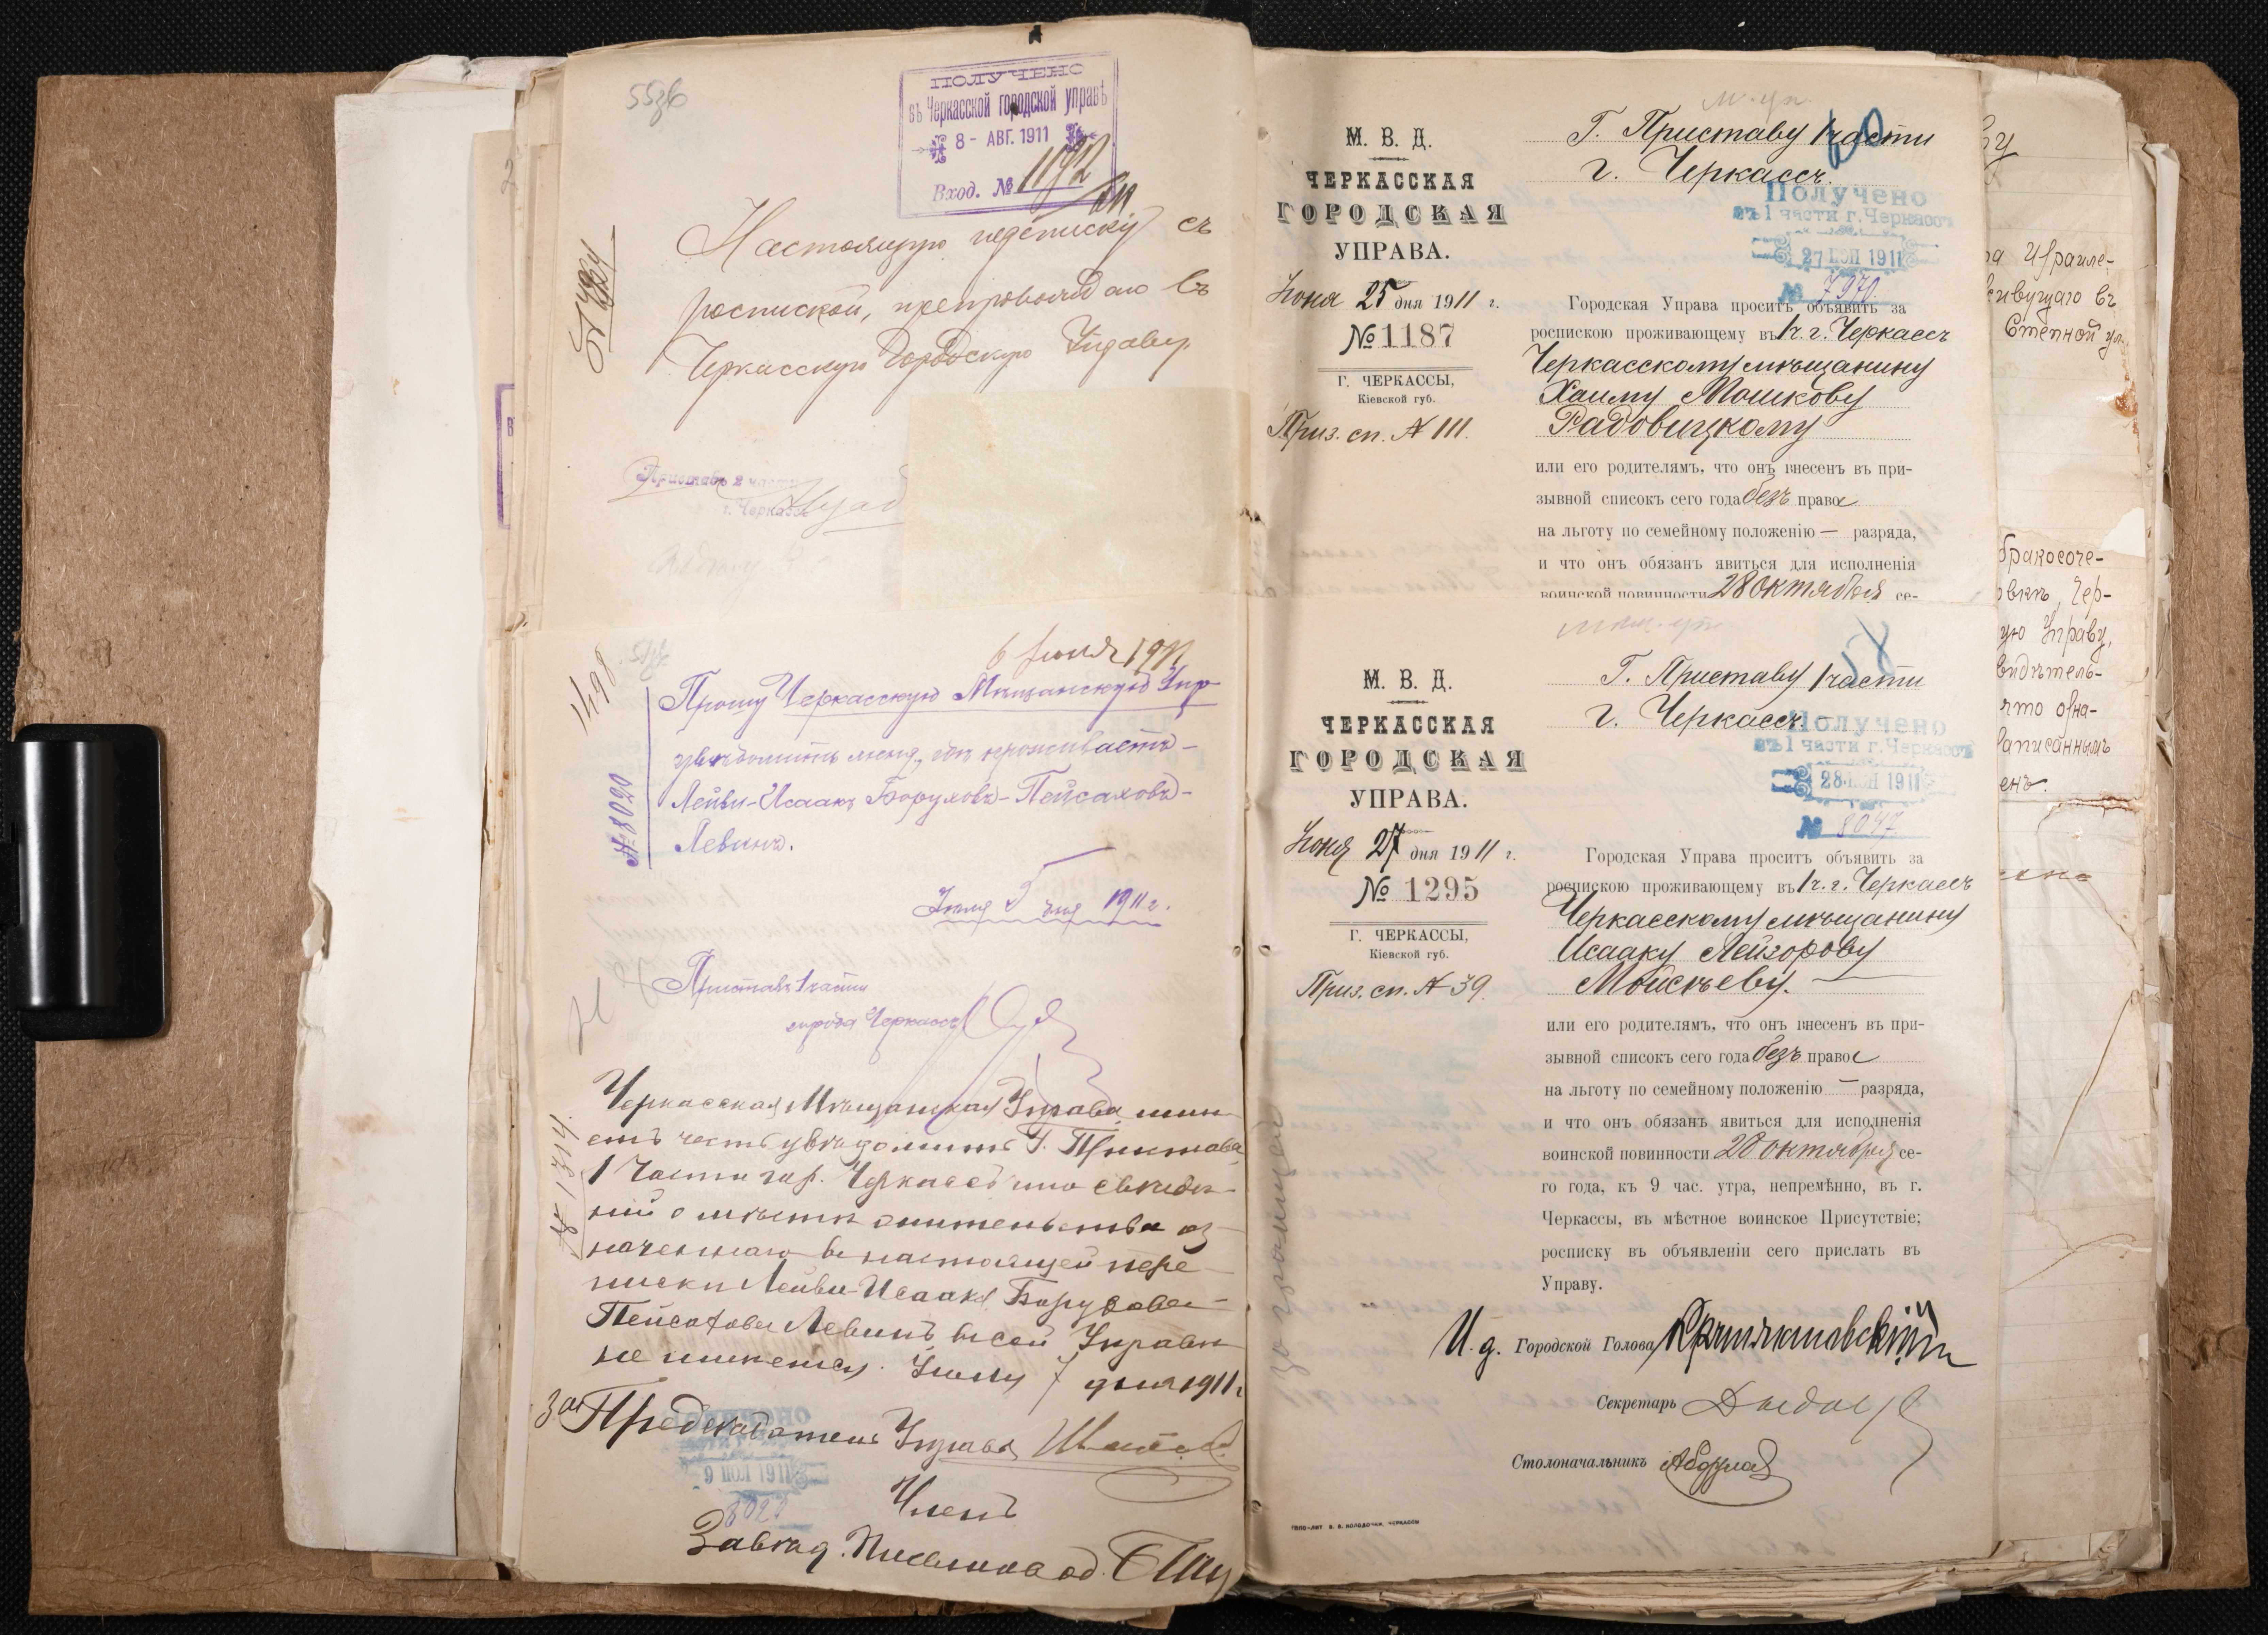 ПОЛУЧЕНО
въ Черкасской городской управѣ
8 - АВГ. 1911
Вход. № 11192
Настоящую подписку съ
роспиской, препровождаю въ
Черкасскую Городскую Управу
Приставъ 2 части
г. Черкассъ
6 Іюля 1911
1498
№ 8020
Прошу Черкасскую Мѣщанскую Упр-
увѣдомить меня, гдѣ проживаетъ-
Лейви-Исаакъ Боруховъ-Пейсаховъ-
Левинъ.
Іюля 5 дня 1911 г.
Приставъ 1 части
города Черкассъ
№ 1314.
Черкасская Мѣщанская Управа имѣ-
етъ честь увѣдомить Г. Пристава
1 Части гор. Черкассъ что свѣдѣ-
ній о мѣстѣ жительства оз-
наченнаго въ настоящей пере-
писки Лейви-Исаака Борухова-
Пейсахова Левинъ въ сей Управѣ
не имѣется. Іюля 7 дня 1911 г.
За Предсѣдателя Управы
9 ІЮЛ 1911
Членъ
Завѣд. Письмовод.
М. В. Д.
ЧЕРКАССКАЯ
ГОРОДСКАЯ
УПРАВА.
Іюня 25 дня 1911 г.
№ 1187
Г. ЧЕРКАССЫ,
Кіевской губ.
Приз. сп. № 111.
Г. Приставу 1 части
г. Черкассъ.
60
Получено
въ 1 части г. Черкассъ
27 ІЮН 1911
№ 7970
Городская Управа проситъ объявить за
роспискою проживающему въ 1 ч. г. Черкассъ
Черкасскому мѣщанину
Хаиму Мошкову
Радовицкому
или его родителямъ, что онъ внесенъ въ при-
зывной списокъ сего года безъ права
на льготу по семейному положенію — разряда,
и что онъ обязанъ явиться для исполненія
воинской повинности 28 октября се-
М. В. Д.
ЧЕРКАССКАЯ
ГОРОДСКАЯ
УПРАВА.
Іюня 27 дня 1911 г.
№ 1295
Г. ЧЕРКАССЫ,
Кіевской губ.
Приз. сп. № 39.
Г. Приставу 1 части
г. Черкассъ.
Получено
въ 1 части г. Черкассъ
28 ІЮН 1911
№ 8047
Городская Управа проситъ объявить за
роспискою проживающему въ 1 ч. г. Черкассъ
Черкасскому мѣщанину
Исааку Лейзорову
Мойсѣеву. —
или его родителямъ, что онъ внесенъ въ при-
зывной списокъ сего года безъ права
на льготу по семейному положенію — разряда,
и что онъ обязанъ явиться для исполненія
воинской повинности 28 октября се-
го года, къ 9 час. утра, непремѣнно, въ г.
Черкассы, въ мѣстное воинское Присутствіе;
росписку въ объявленіи сего прислать въ
Управу.
И. д. Городской Голова
Секретарь
Столоначальникъ
за границей
ву
Израиле-
живущаго въ
Степной ул.
бракосоче-
Чер-
ую Управу,
видѣтель-
что озна-
записаннымъ
енъ.